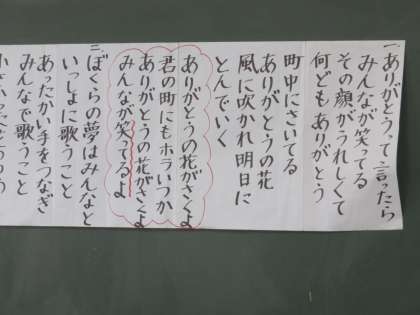 一、ありがとうって言ったら
みんなが笑ってる
その顔がうれしくて
何どもありがとう
町中にさいてる
ありがとうの花
風に吹かれ明日に
とんでいく
ありがとうの花がさくよ
君の町にもホラいつか
ありがとうの花がさくよ
みんなが笑ってるよ
二、ぼくらの夢はみんなと
いっしょに歌うこと
あったかい手をつなぎ
みんなで歌うこと